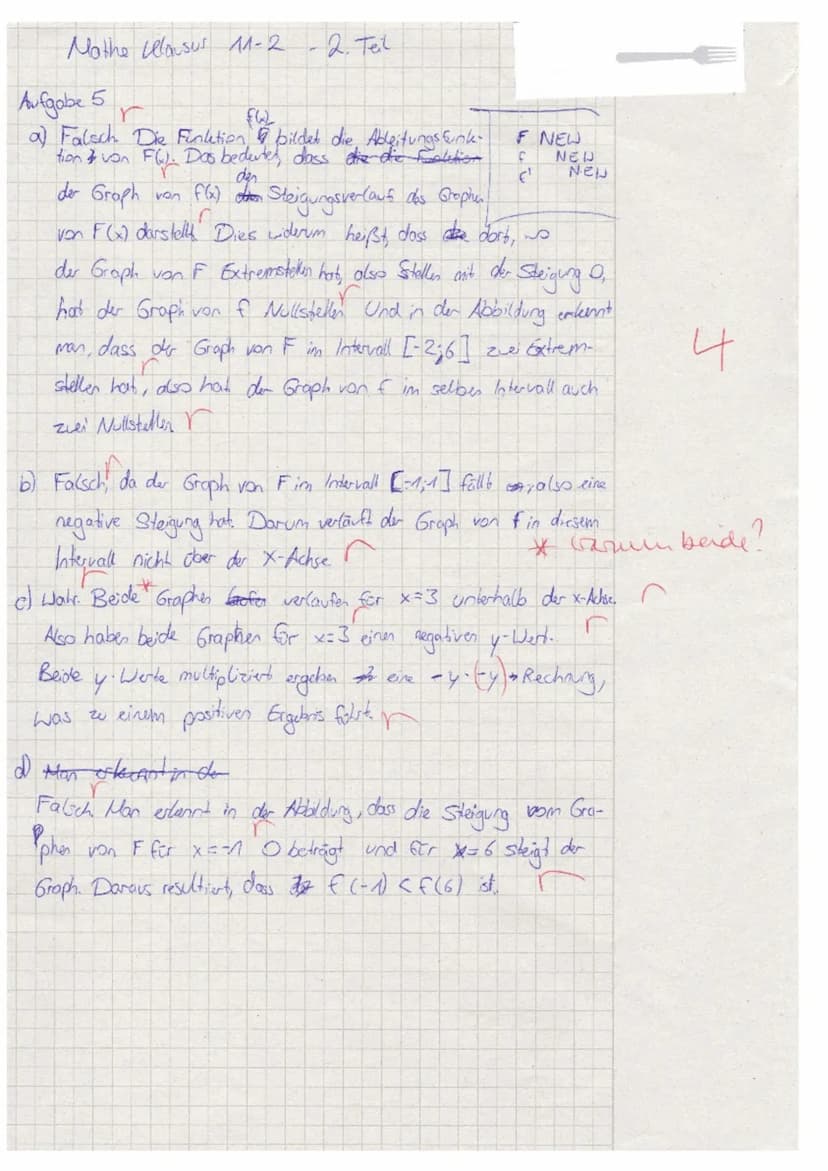 Mathe Klausur 11-2 - 2. Teil
Aufgabe 5
f(x)
a) Falsch. Die Funktion bildet die Ableitungsfunk-
tion von F(x). Das bedeutet, dass die die Funktion
den
der Graph von f(x) Steigungsverlauf des Graphen
von F(x) darstellt. Dies widerum heißt, dass dort, wo
der Graph von F Extremstellen hat, also Stellen mit der Steigung 0,
hat der Graph von f Nullstellen. Und in der Abbildung erkennt
man, dass der Graph von F im Intervall [-2;6] zwei Extrem-
stellen hat, also hat der Graph von f im selben Intervall auch
zwei Nullstellen
F NEW
f NEW
f' NEW
4
b) Falsch, da der Graph von F im Intervall [-1;1] fällt, also eine
negative Steigung hat. Darum verläuft der Graph von f in diesem
Intervall nicht über der X-Achse.
* warum beide?
c) Wahr. Beide* Graphen verlaufen für x=3 unterhalb der x-Achse.
Also haben beide Graphen für x=3 einen negativen y-Wert.
Beide y-Werte multipliziert ergeben eine -y·(-y)-Rechnung,
was zu einem positiven Ergebnis führt.
d) Man erkennt in de
Falsch. Man erkennt in der Abbildung, dass die Steigung vom Gra-
phen von F für x=-1 0 beträgt und für x=6 steigt der
Graph. Daraus resultiert, dass f(-1) < f(6) ist.